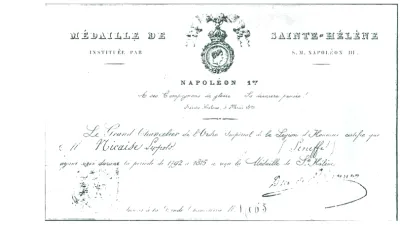 MÉDAILLE DE SAINTE-HÉLÈNE
INSTITUÉE PAR S. M. NAPOLÉON III.
NAPOLÉON 1er
A ses Compagnons de gloire. Sa dernière pensée!
Sainte Hélène 5 Mai 1821
Le Grand Chancelier de l'Ordre Impérial de la Légion d'Honneur certifie que
M Nicaise Léopold (Seneffe)
ayant servi durant la période de 1792 à 1815 a reçu la Médaille de Ste Hélène.